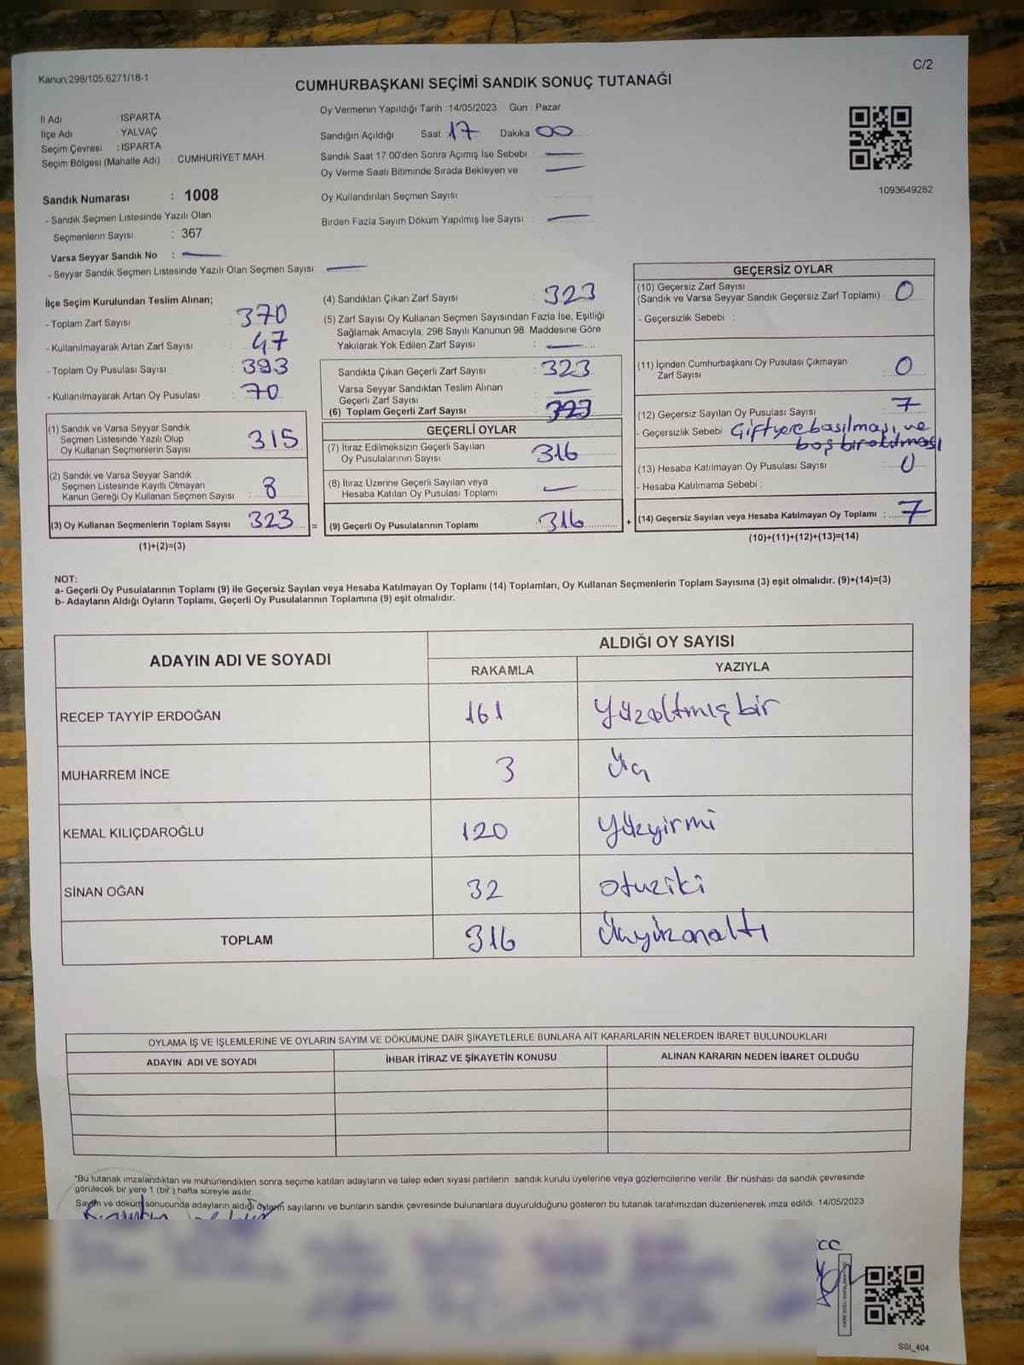 Kanun 298/105,6271/18-1
C/2
CUMHURBAŞKANI SEÇİMİ SANDIK SONUÇ TUTANAĞI
İl Adı : ISPARTA
İlçe Adı : YALVAÇ
Seçim Çevresi : ISPARTA
Seçim Bölgesi (Mahalle Adı) : CUMHURİYET MAH
Sandık Numarası : 1008
- Sandık Seçmen Listesinde Yazılı Olan
Seçmenlerin Sayısı : 367
Varsa Seyyar Sandık No :
- Seyyar Sandık Seçmen Listesinde Yazılı Olan Seçmen Sayısı
Oy Vermenin Yapıldığı Tarih : 14/05/2023 Gün : Pazar
Sandığın Açıldığı Saat 17 Dakika 00
Sandık Saat 17 00'den Sonra Açımış İse Sebebi
Oy Verme Saati Bitiminde Sırada Bekleyen ve
Oy Kullandırılan Seçmen Sayısı
Birden Fazla Sayım Döküm Yapılmış İse Sayısı
1093649282
İlçe Seçim Kurulundan Teslim Alınan;
- Toplam Zarf Sayısı 370
- Kullanılmayarak Artan Zarf Sayısı 47
- Toplam Oy Pusulası Sayısı 393
- Kullanılmayarak Artan Oy Pusulası 70
(1) Sandık ve Varsa Seyyar Sandık
Seçmen Listesinde Yazılı Olup
Oy Kullanan Seçmenlerin Sayısı 315
(2) Sandık ve Varsa Seyyar Sandık
Seçmen Listesinde Kayıtlı Olmayan
Kanun Gereği Oy Kullanan Seçmen Sayısı 8
(3) Oy Kullanan Seçmenlerin Toplam Sayısı 323 =
(1)+(2)=(3)
(4) Sandıktan Çıkan Zarf Sayısı 323
(5) Zarf Sayısı Oy Kullanan Seçmen Sayısından Fazla İse, Eşitliği
Sağlamak Amacıyla, 298 Sayılı Kanunun 98. Maddesine Göre
Yakılarak Yok Edilen Zarf Sayısı :
Sandıkta Çıkan Geçerli Zarf Sayısı : 323
Varsa Seyyar Sandıktan Teslim Alınan
Geçerli Zarf Sayısı
(6) Toplam Geçerli Zarf Sayısı 323
GEÇERLİ OYLAR
(7) İtiraz Edilmeksizin Geçerli Sayılan
Oy Pusulalarının Sayısı 316
(8) İtiraz Üzerine Geçerli Sayılan veya
Hesaba Katılan Oy Pusulası Toplamı
(9) Geçerli Oy Pusulalarının Toplamı 316 +
GEÇERSİZ OYLAR
(10) Geçersiz Zarf Sayısı
(Sandık ve Varsa Seyyar Sandık Geçersiz Zarf Toplamı) 0
- Geçersizlik Sebebi :
(11) İçinden Cumhurbaşkanı Oy Pusulası Çıkmayan
Zarf Sayısı 0
(12) Geçersiz Sayılan Oy Pusulası Sayısı 7
- Geçersizlik Sebebi Çift yere basılması, ve
boş bırakılması
(13) Hesaba Katılmayan Oy Pusulası Sayısı 0
- Hesaba Katılmama Sebebi :
(14) Geçersiz Sayılan veya Hesaba Katılmayan Oy Toplamı : 7
(10)+(11)+(12)+(13)=(14)
NOT:
a- Geçerli Oy Pusulalarının Toplamı (9) ile Geçersiz Sayılan veya Hesaba Katılmayan Oy Toplamı (14) Toplamları, Oy Kullanan Seçmenlerin Toplam Sayısına (3) eşit olmalıdır. (9)+(14)=(3)
b- Adayların Aldığı Oyların Toplamı, Geçerli Oy Pusulalarının Toplamına (9) eşit olmalıdır.
ADAYIN ADI VE SOYADI
ALDIĞI OY SAYISI
RAKAMLA YAZIYLA
RECEP TAYYİP ERDOĞAN 161 Yüzaltmışbir
MUHARREM İNCE 3 Üç
KEMAL KILIÇDAROĞLU 120 Yüzyirmi
SİNAN OĞAN 32 otuziki
TOPLAM 316 Üçyüzonaltı
OYLAMA İŞ VE İŞLEMLERİNE VE OYLARIN SAYIM VE DÖKÜMÜNE DAİR ŞİKAYETLERLE BUNLARA AİT KARARLARIN NELERDEN İBARET BULUNDUKLARI
ADAYIN ADI VE SOYADI İHBAR İTİRAZ VE ŞİKAYETİN KONUSU ALINAN KARARIN NEDEN İBARET OLDUĞU
*Bu tutanak imzalandıktan ve mühürlendikten sonra seçime katılan adayların ve talep eden siyasi partilerin sandık kurulu üyelerine veya gözlemcilerine verilir. Bir nüshası da sandık çevresinde
görülecek bir yere 1 (bir) hafta süreyle asılır.
Sayım ve döküm sonucunda adayların aldığı oyların sayılarını ve bunların sandık çevresinde bulunanlara duyurulduğunu gösteren bu tutanak tarafımızdan düzenlenerek imza edildi. 14/05/2023
SSI_404